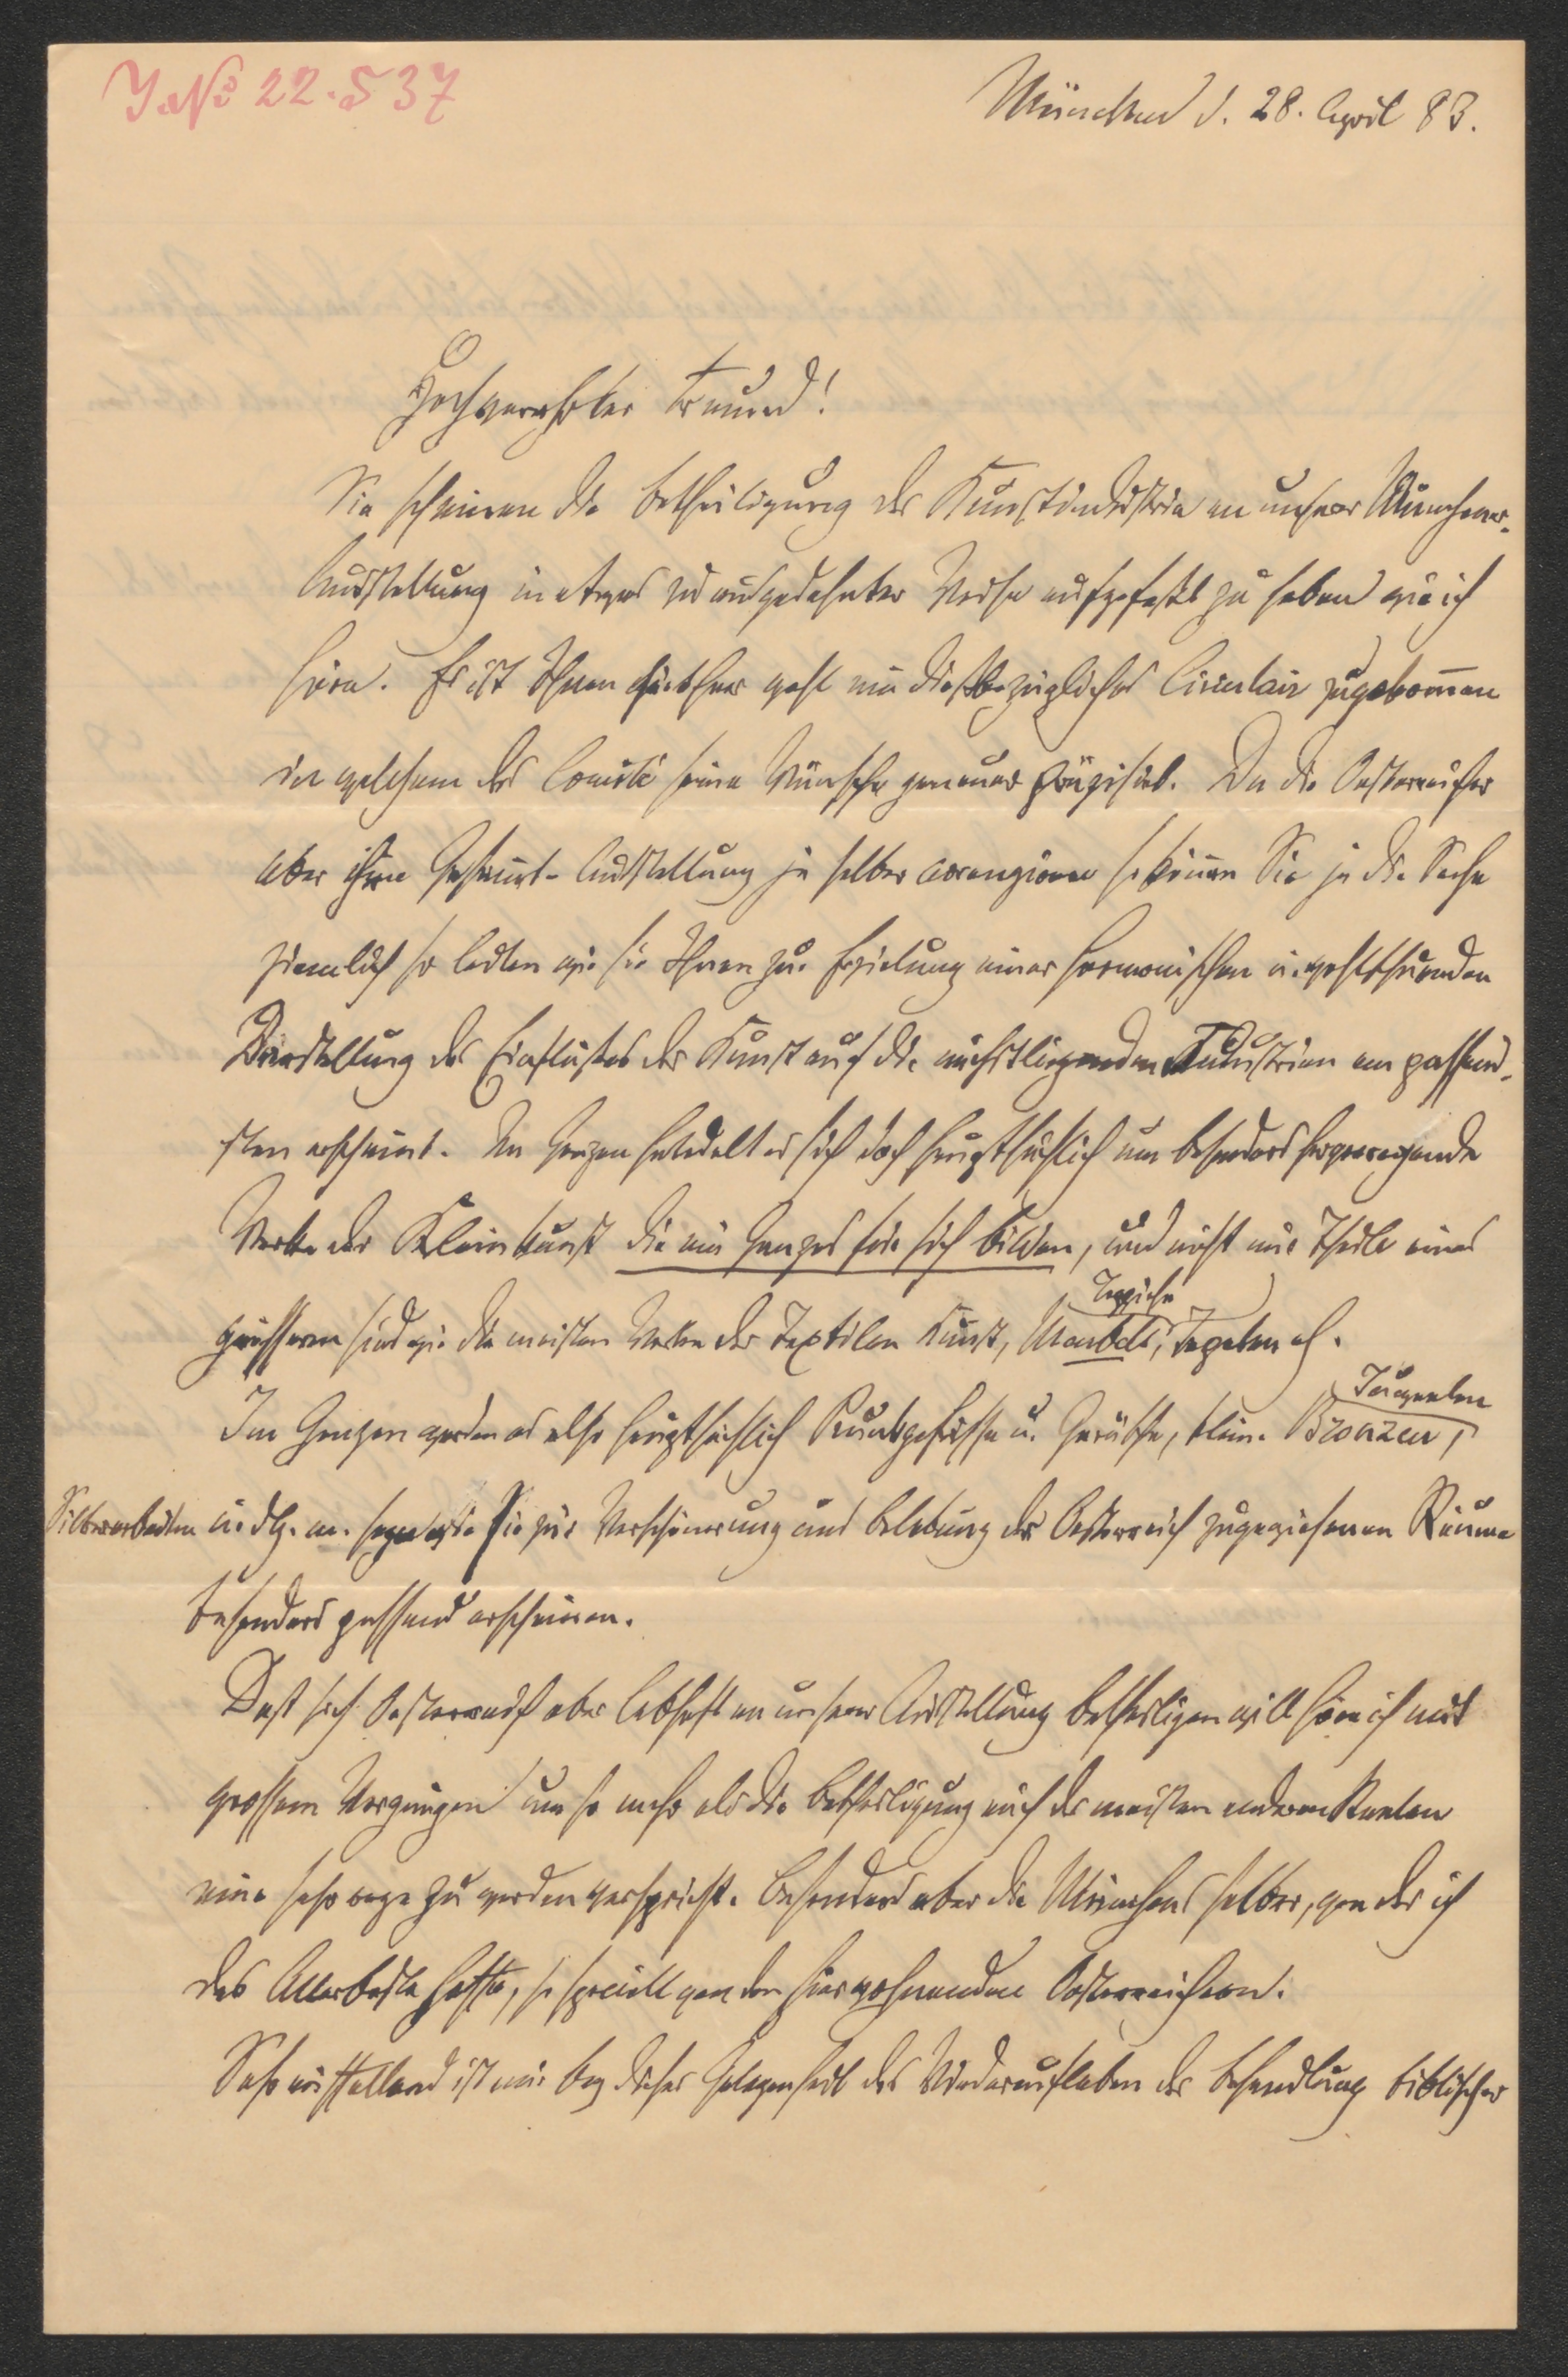 J.№ 22.537
München d. 28. April 83.
Hochverehrter Freund!
Sie scheinen die Betheiligung der Kunstindustrie an unserer Münchener-
Ausstellung in etwas zu ausgedehnter Weise aufgefaßt zu haben wie ich
höre. Es ist Ihnen seither wohl ein dießbezügliches Circulair zugekom̄en
in welchem das Comité seine Wünsche genauer präzisirt. Da die Oesterreicher
aber ihre Gesammt-Ausstellung ja selber arrangieren so kön̄en Sie ja die Sache
ziemlich so leiten wie sie Ihnen zur Erzielung einer harmonischen u. wohlthuenden
Darstellung des Einflußes der Kunst auf die nächstliegenden Industrien am passend-
sten erscheint. Im Ganzen handelt es sich doch hauptsächlich um besonders hervorragende
Werke der Kleinkunst die ein Ganzes für sich bilden, und nicht nur Theile eines
Teppiche
größeren sind wie die meisten Werke der Textilen Kunst, Meubels, Tapeten ect.
Juwelen
Im Ganzen werden es also hauptsächlich Prunkgefässe u. Geräthe, kleine Bronzen,
Silberarbeiten u. dg. m. sein die Sie zur Verschönerung und Belebung der Oesterreich zugewiesenen Räume
besonders passend erscheinen.
Daß sich Oesterreich aber lebhaft an unserer Ausstellung betheiligen will höre ich mit
grossem Vergnügen um so mehr als die Betheiligung auch der meisten anderen Staaten
eine sehr rege zu werden verspricht. Besonders aber die Münchens selber, von der ich
das Allerbeste hoffe, so speciell von den hier wohnenden Oesterreichern.
Sehr auffallend ist mir bey dieser Gelegenheit das Wiederaufleben der Behandlung biblischer